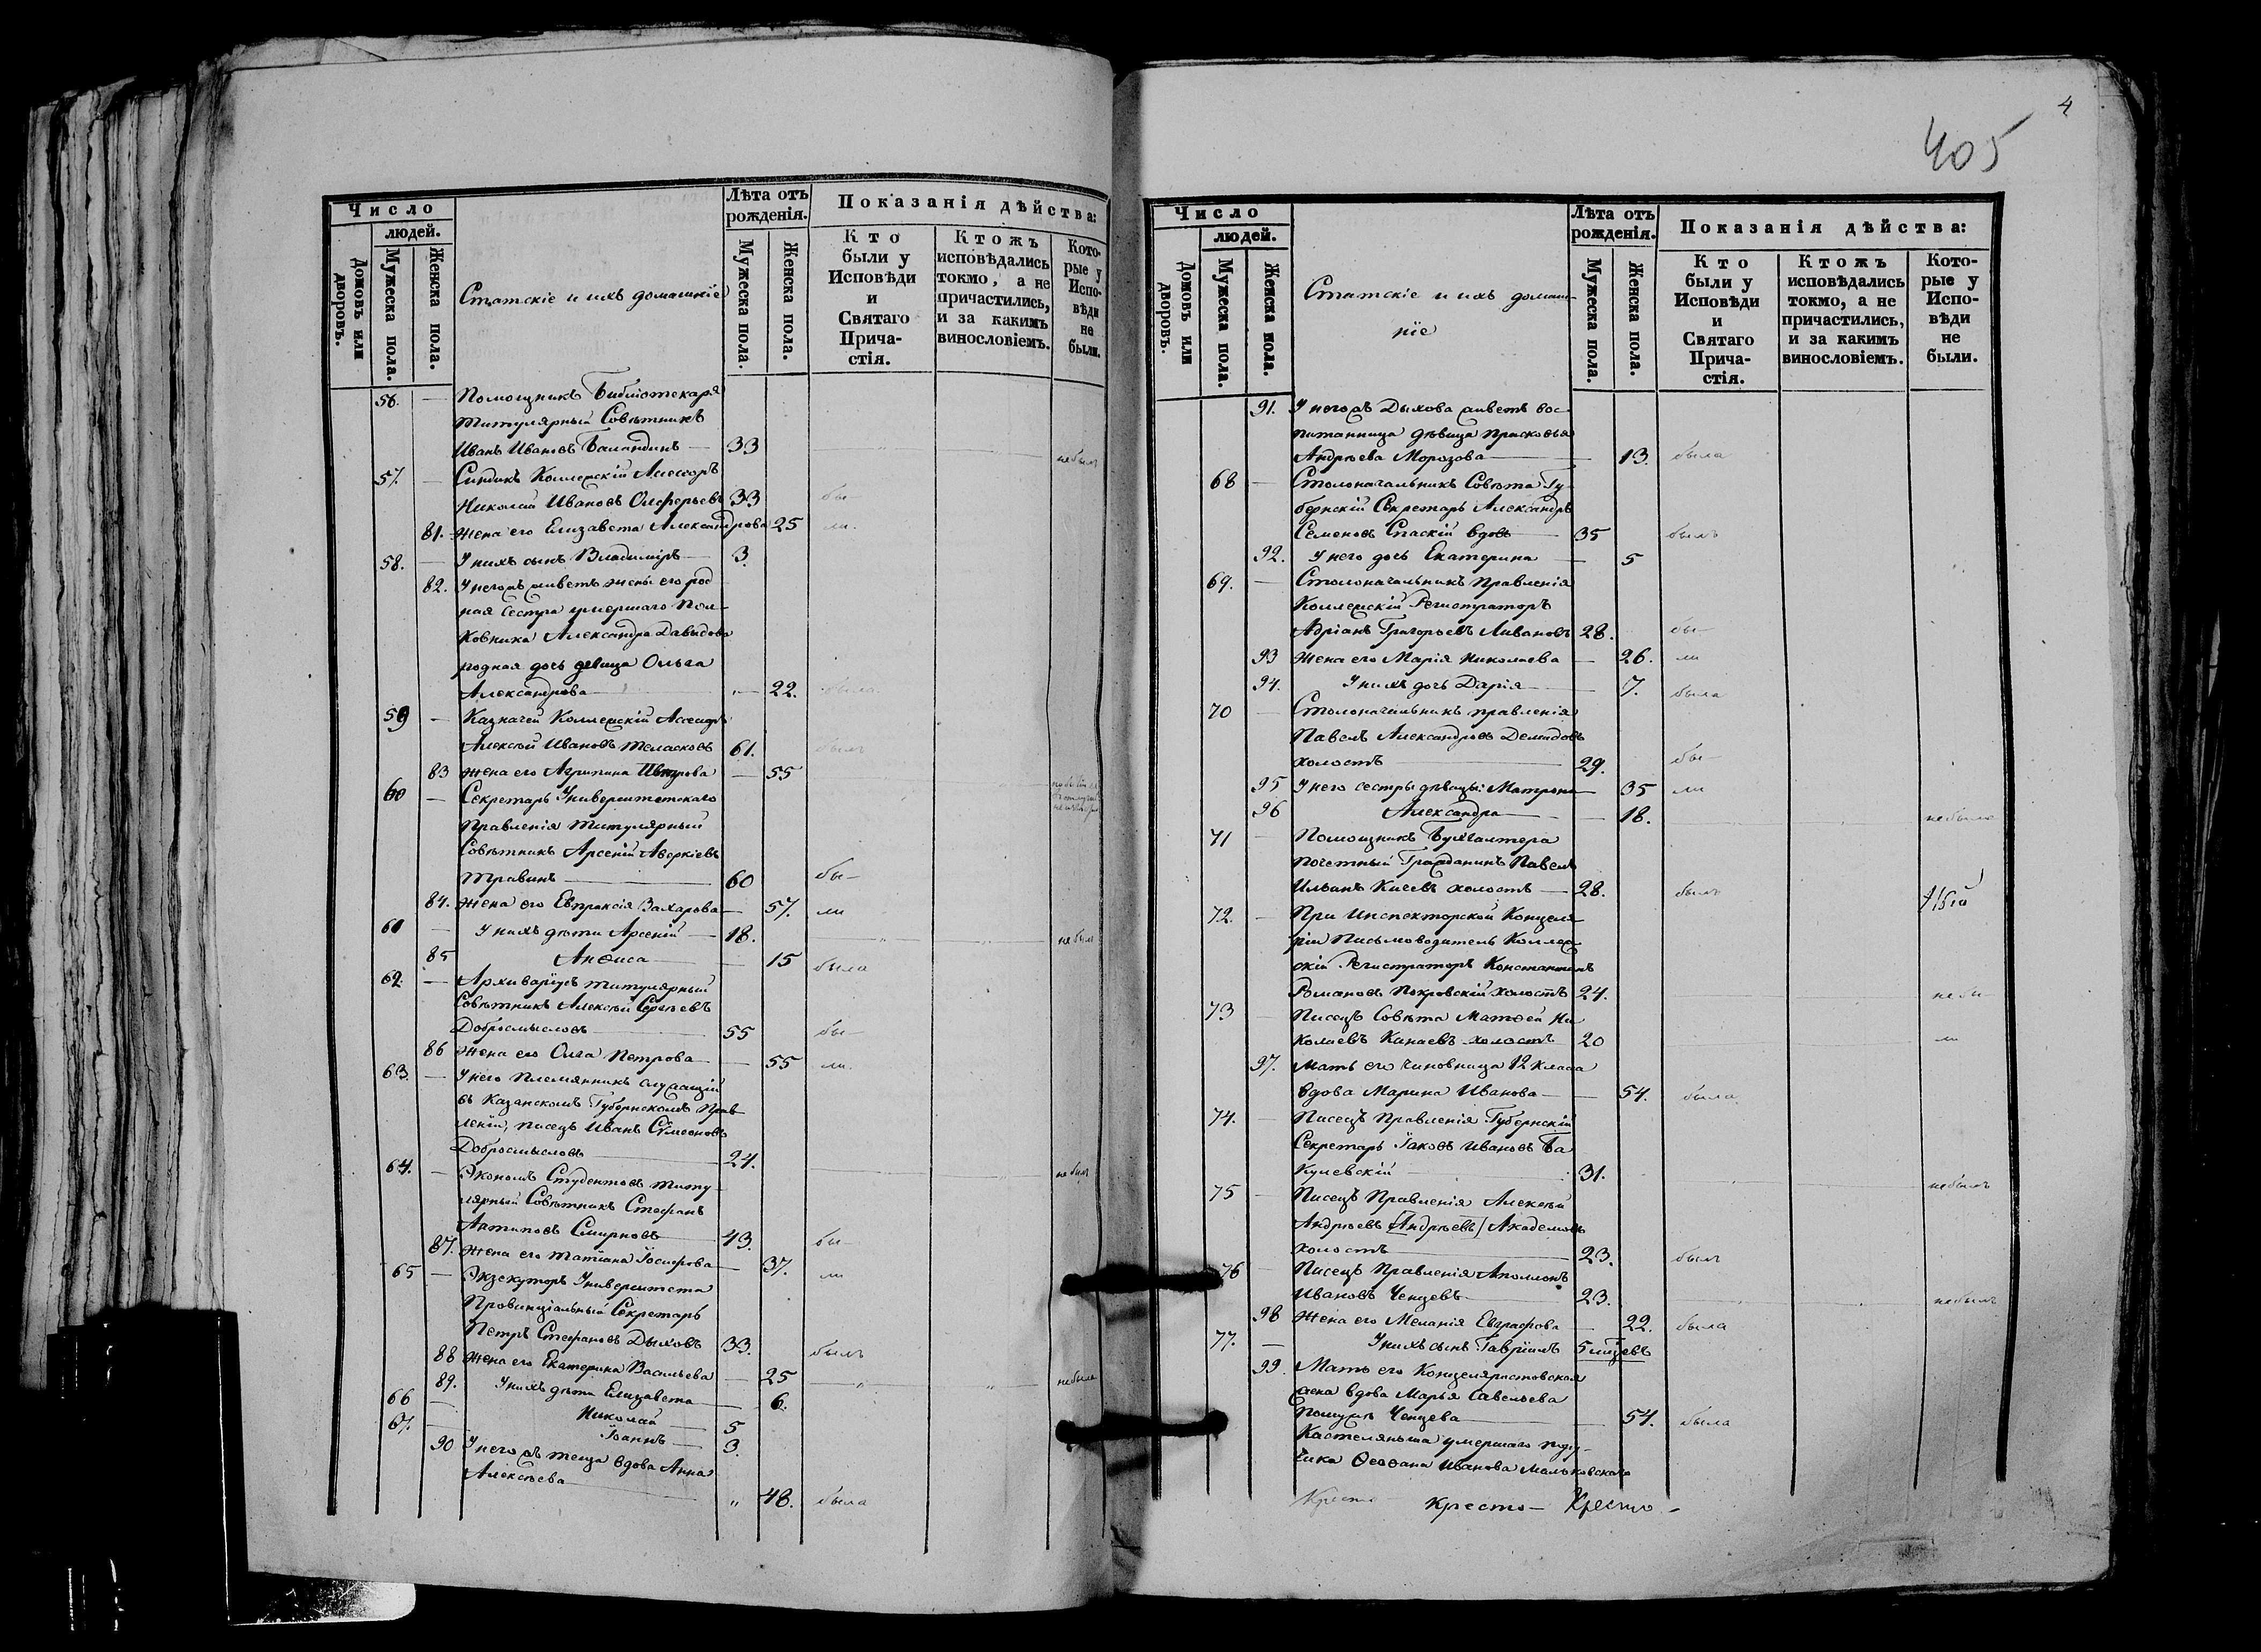 4
405
Число
людей.
Домовъ или дворовъ.
Мужеска пола.
Женска пола.
Статскіе и ихъ домашніе
Лѣта отъ рожденія.
Мужеска пола.
Женска пола.
Показанія дѣйства:
Кто были у Исповѣди и Святаго Прича-стія.
Ктожъ исповѣдались токмо, а не причастились, и за какимъ винословіемъ.
Кото-рые у Испо-вѣди не были.
56. — Помощникъ Библіотекаря
Титулярный Совѣтникъ
Иванъ Ивановъ Баландинъ — 33 небылъ
57. — Синдикъ Коллежскій Ассесоръ
Николай Ивановъ Олферьевъ 33 бы-
81. Жена его Елизавета Александрова 25 ли.
58. — У нихъ сынъ Владиміръ — 3.
82. У него жъ живетъ жены его род
ная сестра умершаго Пол-
ковника Александра Давыдова
родная дочь девица Ольга
Александрова — 22. была
59 — Казначей Коллежскій Ассесоръ
Алексѣй Ивановъ 61. былъ
83 Жена его Агрипина — 55
60 — Секретарь Университетскаго
Правленія Титулярный
Совѣтникъ Арсеній Аверкіевъ
Травинъ — 60 бы-
84. Жена его Евпраксія Захарова — 57. ли
61 — У нихъ дѣти Арсеній — 18. небылъ
85 Анѳиса — 15 была
62. — Архиваріусъ Титулярный
Совѣтникъ Алексѣй Сергѣевъ
Добросмысловъ — 55 бы-
86 Жена его Олга Петрова — 55 ли.
63. — У него племянникъ служащій
въ Казанскомъ Губернскомъ Прав
леніи, писецъ Иванъ Сѵмеоновъ
Добросмысловъ — 24. небылъ
64. — Экономъ Студентовъ титу-
лярный Совѣтникъ Стефанъ
Антиповъ Смирновъ — 43. бы-
87. Жена его Татіана Іосифова — 37. ли
65 — Экзекуторъ Университета
Провинціальный Секретарь
Петръ Стефановъ Дыховъ 33. былъ
88 Жена его Екатерина Васильева — 25 небыла
89. У нихъ дѣти Елизавета — 6.
66 — Николай — 5
67. — Іоаннъ — 3.
90 У него жъ теща вдова Анна
Алексѣева „ 48. была
Число
людей.
Домовъ или дворовъ.
Мужеска пола.
Женска пола.
Статскіе и ихъ домаш-
ніе
Лѣта отъ рожденія.
Мужеска пола.
Женска пола.
Показанія дѣйства:
Кто были у Исповѣди и Святаго Прича-стія.
Ктожъ исповѣдались токмо, а не причастились, и за какимъ винословіемъ.
Кото-рые у Испо-вѣди не были.
91. У него жъ Дыхова живетъ вос-
питанница дѣвица Прасковья
Андрѣева Морозова — 13. была
68 — Столоначальникъ Совѣта Гу-
бернскій Секретарь Александръ
Семеновъ Спаскій вдовъ 35 былъ
92. У него дочь Екатерина — 5
69. — Столоначальникъ Правленія
Коллежскій Регистраторъ
Адріанъ Григорьевъ Ливановъ 28. бы-
93 Жена его Марія Николаева — 26. ли
94. У нихъ дочь Дарія — 7. была
70 — Столоначальникъ правленія
Павелъ Александровъ Демидовъ
холостъ — 29. бы-
95 У него сестры дѣвицы: Матрона — 35 ли
96 Александра — 18. небыла
71 — Помощникъ Бухгалтера
Почетный Гражданинъ Павелъ
Кисевъ холостъ — 28. былъ
72. — При Инспекторской Канцеля
ріи Письмоводитель Коллеж
скій Регистраторъ Константинъ
Романовъ Покровскій холостъ 24. небы
73 — Писецъ Совѣта Матѳей Ни
колаевъ Канаевъ холостъ 20 ли
97. Мать его чиновница 12 класа
вдова Марина Иванова — 54. была
74. — Писецъ Правленія Губернскій
Секретарь Іаковъ Ивановъ Ба
кулевскій 31. небылъ
75 — Писецъ Правленія Алексѣй
Андрѣевъ Андрѣевъ / Академовъ
холостъ — 23. былъ
76 — Писецъ Правленія Аполлонъ
Ивановъ Ченцевъ — 23. небылъ
98 Жена его Меланія Евграфова — 22. была
77. — У нихъ сынъ Гавріилъ 5 мцевъ
99. Мать его Канцеляристовская
жена вдова Марья Савельева
Ченцева — 54. была
Кастелянша умершаго пору-
чика Ѳеофана Иванова Мальковскаго
Кресто- Кресто- Кресто-